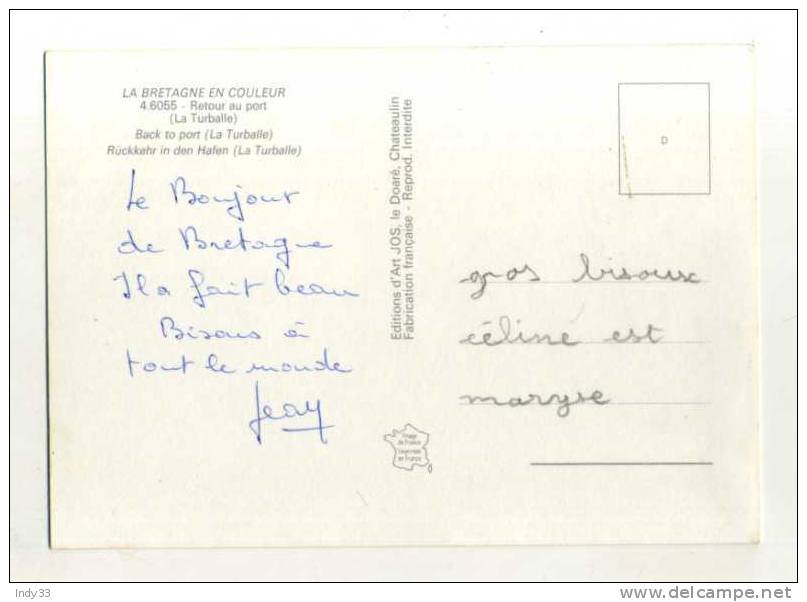 LA BRETAGNE EN COULEUR
4.6055 - Retour au port
(La Turballe)
Back to port (La Turballe)
Rückkehr in den Hafen (La Turballe)
Le Bonjour
de Bretagne
Il a fait beau
Bisous à
tout le monde
Jeany
Editions d'Art JOS, le Doaré, Chateaulin
Fabrication française - Reprod. Interdite
Image
de France
imprimée
en France
D
gros bisoux
céline est
maryse
Indy33
www.delcampe.net